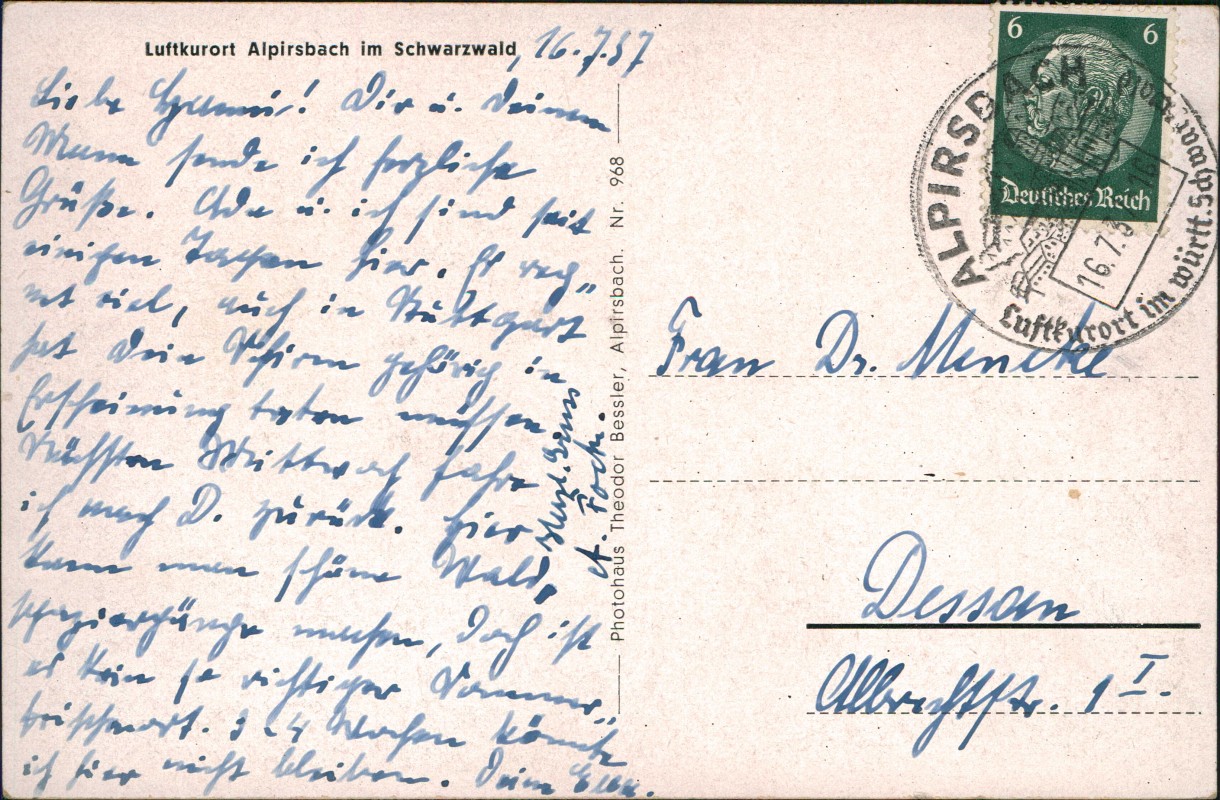 Luftkurort Alpirsbach im Schwarzwald, 16.7.37
Liebe ! Dir u. Deinem
Mann sende ich herzliche
Grüße. Ada u. ich sind seit
einigen Tagen hier. Es reg„
net viel, auch in Stuttgart
hat dein Schirm gehörig in
Erscheinung treten müssen.
Nächsten Mittwoch fahre
ich nach D. zurück. Hier
kann man schöne Wald„
spaziergänge machen, doch ist
es kein so richtiger Sommer„
frischeort. 3 - 4 Wochen könnte
ich hier nicht bleiben. Deine Elbe.
Herzl. Gruss
A. Focke.
Photohaus Theodor Bessler, Alpirsbach. Nr. 968
6 6
Deutsches Reich
ALPIRSBACH
16.7.37
Luftkurort im württ. Schwarzwald
Frau Dr. Mencke
Dessau
Albrechtstr. 1 I.